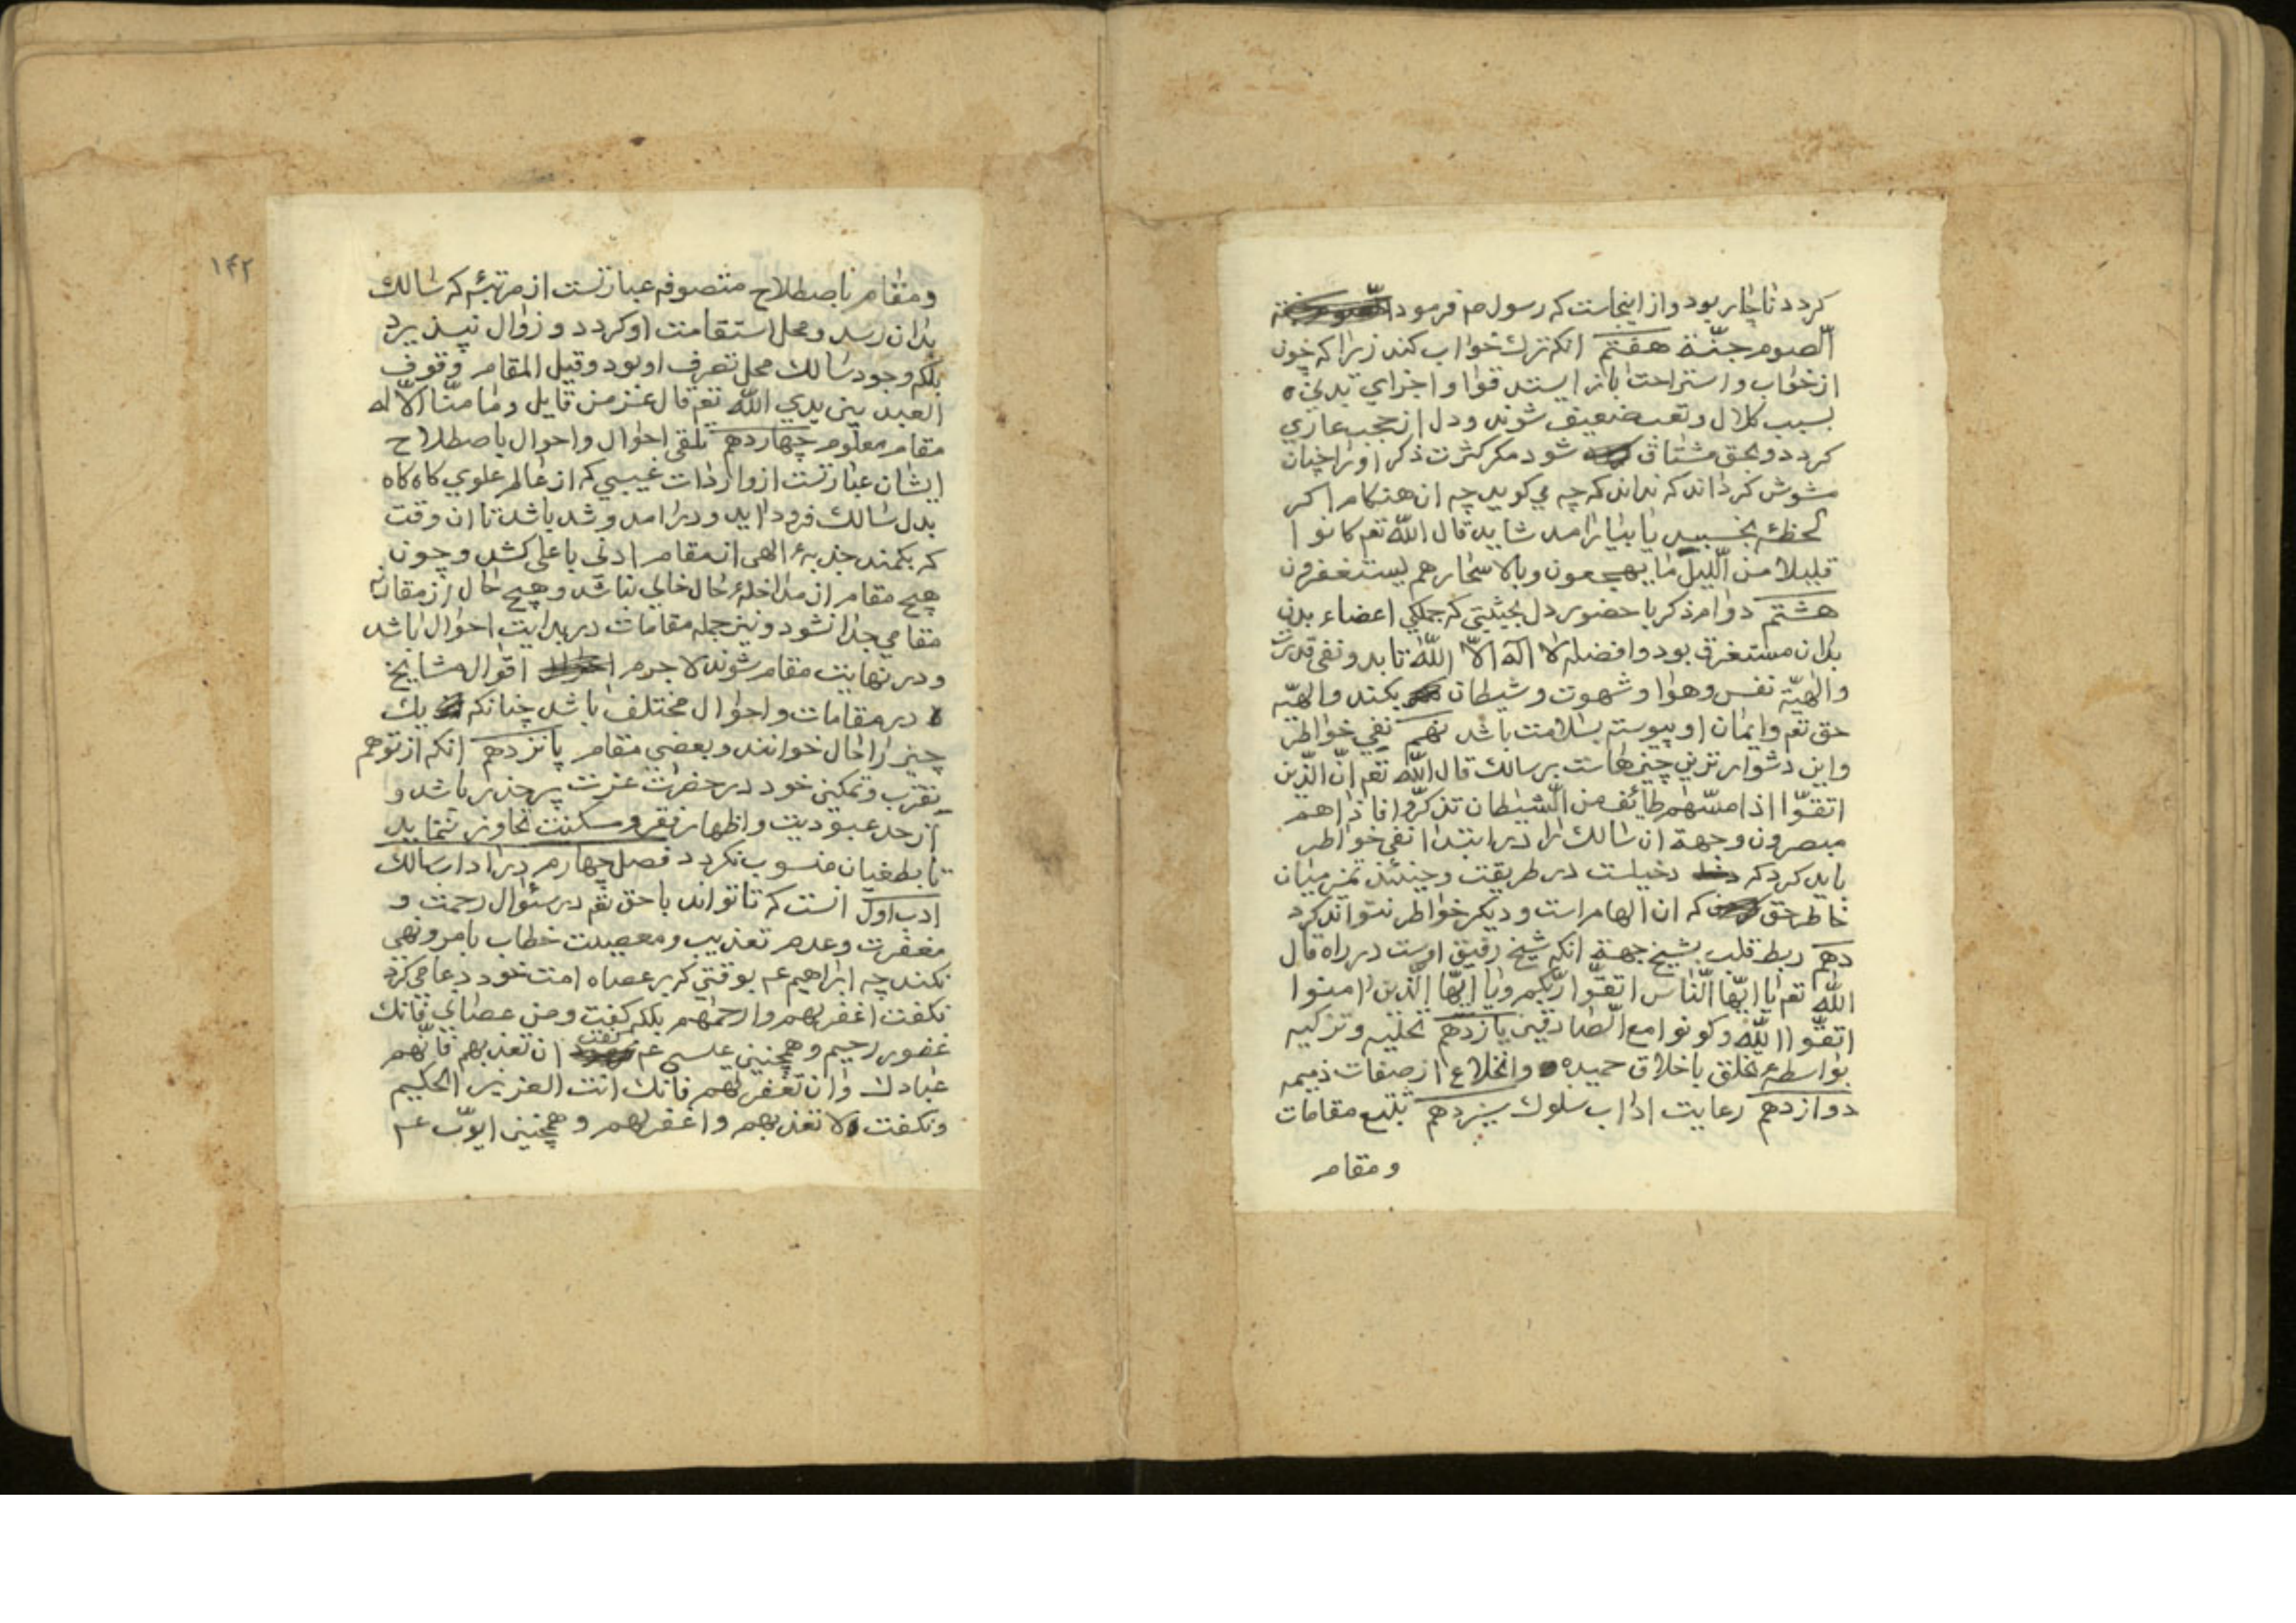 کردد ناچار بود و از اینجاست که رسول صم فرمود
الصوم جنّة هفتم انکه ترك خواب کند زیرا که چون
از خواب و استراحت باز ایستد قوا و اجزای بدنی
بسبب کلال و تعب ضعیف شوند و دل از حجب عاری
کردد و بحق مشتاق شود مکر کثرت ذکر او را چنان
مشوش کرداند که نداند که چه می کوید چه ان هنکام اکر
لحظهٔ بخسبد یا بیارامد شاید قال الله تعم کانوا
قلیلا من اللیل ما یهجعون وبالاسحار هم یستغفرون
هشتم دوام ذکر با حضور دل بحیثیتی که جملکی اعضاء بدن
بدان مستغرق بود و افضله لا اله الّا الله تا بدو نفی قدرت
والهیّة نفس وهوا وشهوت وشیطان بکند والهیّه
حق تعم وایمان او پیوسته بسلامت باشد نهم نفی خواطر
واین دشوارترین چیزهاست بر سالك قال الله تعم انّ الّذین
اتقوا اذا مسّهم طائف من الشیطان تذکّروا فاذا هم
مبصرون وجهة ان سالك را در ابتدا نفی خواطر
باید کرد که دخیلست در طریقت وحینئذ تمیز میان
خاطر حق که ان الهام است و دیکر خواطر نتواند کرد
دهم ربط قلب بشیخ جهة انکه شیخ رفیق اوست در راه قال
الله تعم یا ایّها النّاس اتقوا ربّکم ویا ایّها الّذین امنوا
اتقوا اللّه وکونوا مع الصّادقین یازدهم تحلیه وتزکیه
بواسطهٔ تخلق باخلاق حمیده وانخلاع از صفات ذمیمه
دوازدهم رعایت اداب سلوك سیزدهم تتبع مقامات
ومقام
۱۴۲
ومقام باصطلاح متصوفه عبارتست از مرتبهٔ که سالك
بدان رسد و محل استقامت او کردد و زوال نپذیرد
بلکه وجود سالك محل تصرف او بود وقیل المقام وقوف
العبد بین یدی اللّه تعم قال عز من قایل وما منّا الّا له
مقام معلوم چهاردهم تلقی احوال واحوال باصطلاح
ایشان عبارتست از واردات غیبی که از عالم علوی کاه کاه
بدل سالك فرود اید و در امد و شد باشد تا ان وقت
که بکمند جذبهٔ الهی از مقام ادنی باعلی کشد وچون
هیچ مقام از مداخلهٔ حال خالی نباشد وهیچ حال از مقارنه
مقامی جدا نشود و نیز جمله مقامات در بدایت احوال باشد
و در نهایت مقام شوند لا جرم اقوال مشایخ
در مقامات واحوال مختلف باشد چنانکه یك
چیز را حال خوانند وبعضی مقام پانزدهم انکه از توهم
تقرّب وتمکین خود در حضرت عزت پر حذر باشد و
از حد عبودیت واظهار فقر ومسکنت تجاوز ننماید
تا بطغیان منسوب نکردد فصل چهارم در اداب سالك
ادب اول انست که تا تواند با حق تعم در سئوال رحمت و
مغفرت وعدم تعذیب ومعصیت خطاب بامر ونهی
نکند چه ابراهیم عم بوقتی که بر عصاه امت خود دعا می کرد
نکفت اغفر لهم وارحمهم بلکه کفت ومن عصانی فانك
غفور رحیم وهمچنین عیسی عم کفت ان تعذبهم فانّهم
عبادك وان تغفر لهم فانك انت العزیز الحکیم
ونکفت لا تعذبهم واغفر لهم وهمچنین ایوب عم